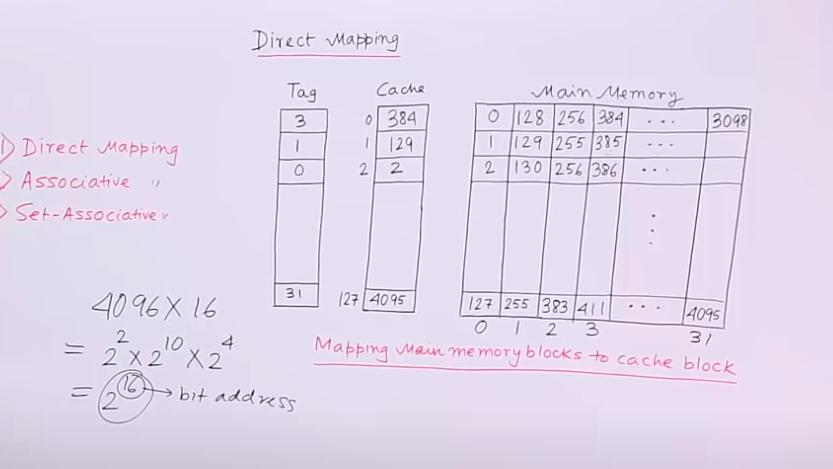 Direct Mapping
Tag Cache Main Memory
3 0 384 0 128 256 384 ... 3098
1 1 129 1 129 255 385 ...
0 2 2 2 130 256 386 ...
31 127 4095 127 255 383 411 ... 4095
0 1 2 3 31
1) Direct Mapping
) Associative "
) Set-Associative "
4096 X 16
= 2² X 2¹⁰ X 2⁴
= 2¹⁶ → bit address
Mapping Main memory blocks to cache block